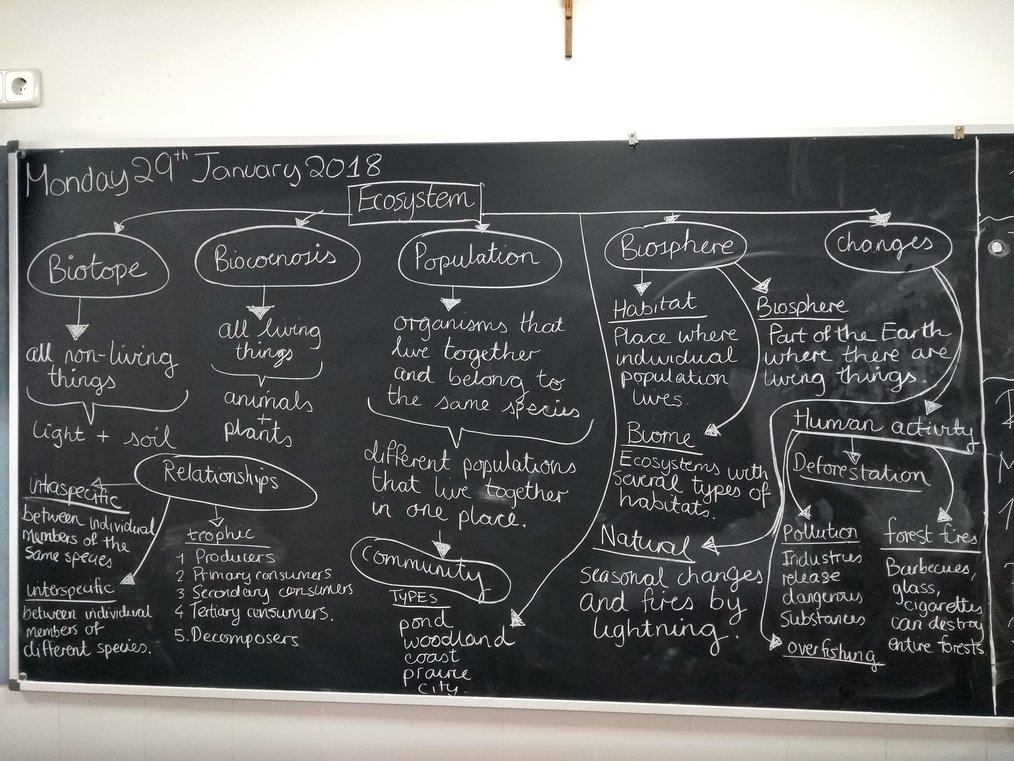 Monday 29th January 2018
Ecosystem
Biotope
all non-living
things
light + soil
Biocoenosis
all living
things
animals
+
plants
Population
organisms that
live together
and belong to
the same species
different populations
that live together
in one place.
Community
TYPES
pond
woodland
coast
prairie
city.
Relationships
intraspecific
between individual
members of the
same species
interspecific
between individual
members of
different species.
trophic
1 Producers
2 Primary consumers
3 Secondary consumers
4 Tertiary consumers.
5. Decomposers
Biosphere
Habitat
Place where
individual
population
lives.
Biosphere
Part of the Earth
where there are
living things.
Biome
Ecosystems with
several types of
habitats.
changes
Natural
seasonal changes
and fires by
lightning.
Human activity
Deforestation
Pollution
Industries
release
dangerous
substances
overfishing
forest fires
Barbecues,
glass,
cigarettes
can destroy
entire forests.